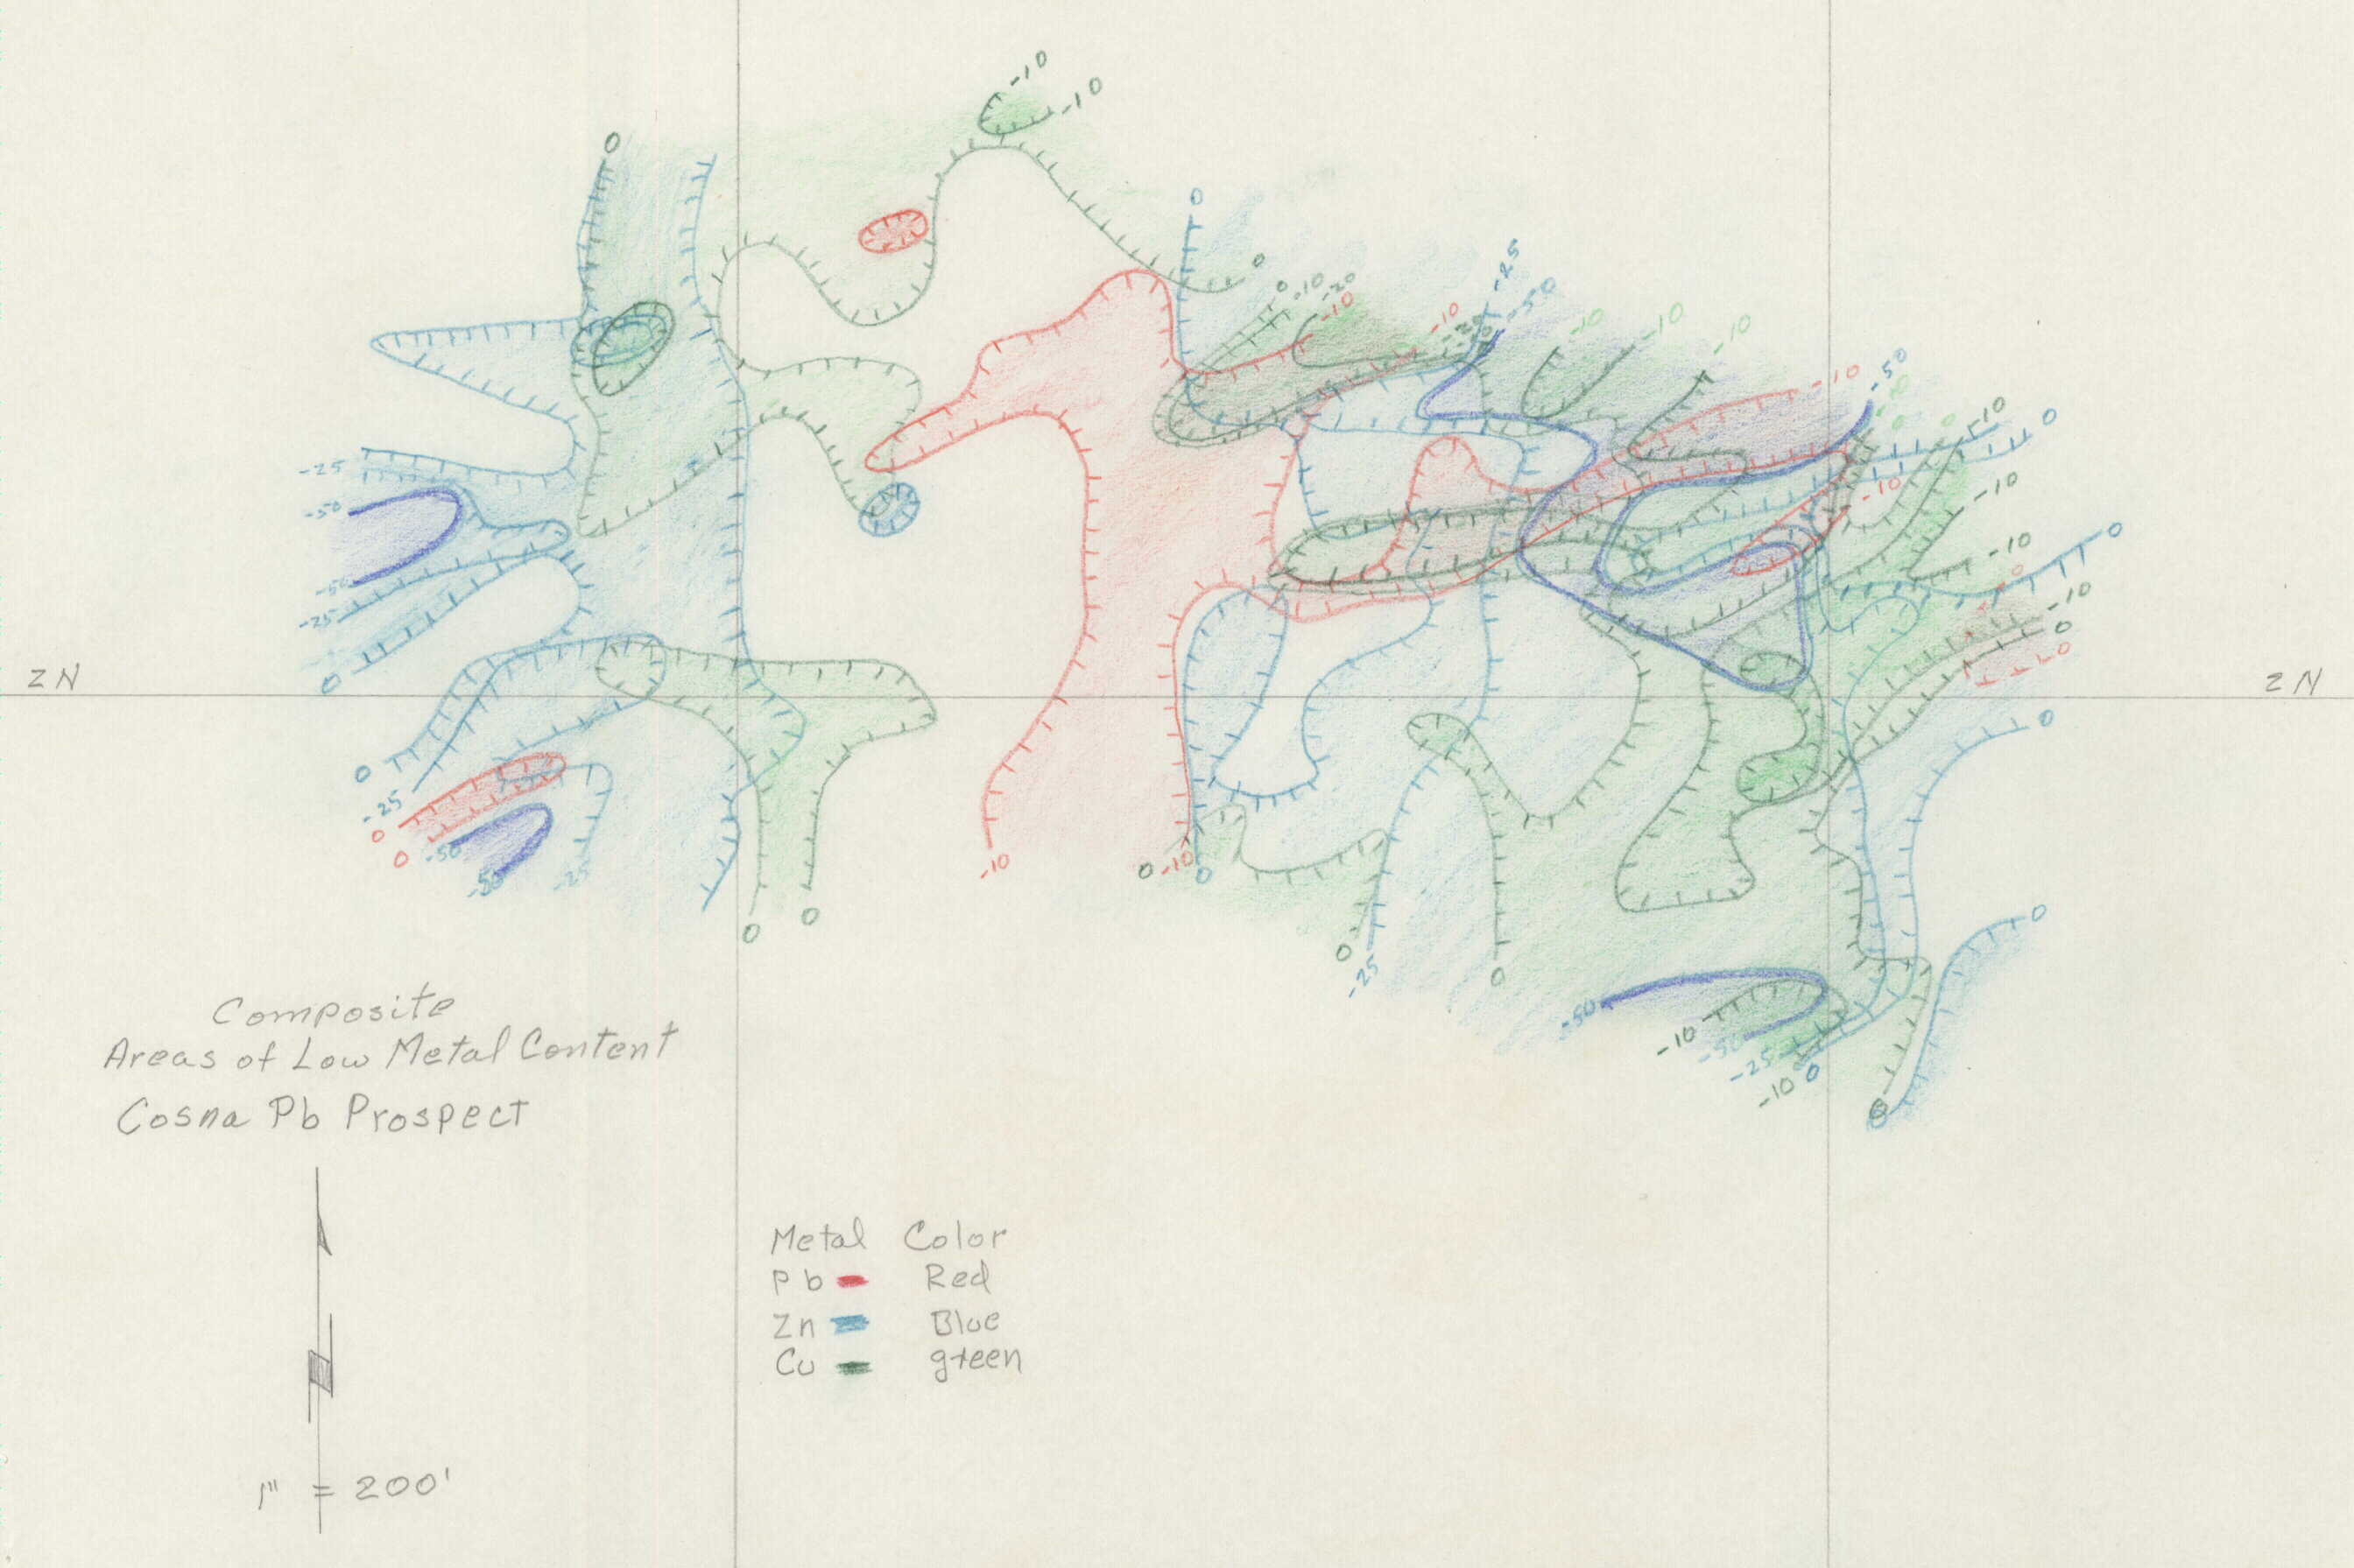 -10
-10
0
0
-25
0
-50
0
-10
-20
-10
-10
-20
-10
-10
-10
-10
-50
-10
0
0
-10
0
-25
-50
-10
-10
0
-50
-25
-10
0
-10
0
0
0
ZN
ZN
0
0
-25
0
0
-50
-50
-25
-10
0
-10
0
0
0
0
-25
0
0
-50
-10
-50
-25
-10
0
0
Composite
Areas of Low Metal Content
Cosna Pb Prospect
Metal Color
Pb Red
Zn Blue
Cu green
1" = 200'